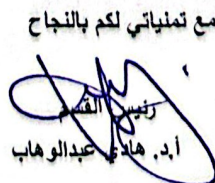 مع تمنياتي لكم بالنجاح
رئيس القسم
أ.د. هادي عبدالوهاب